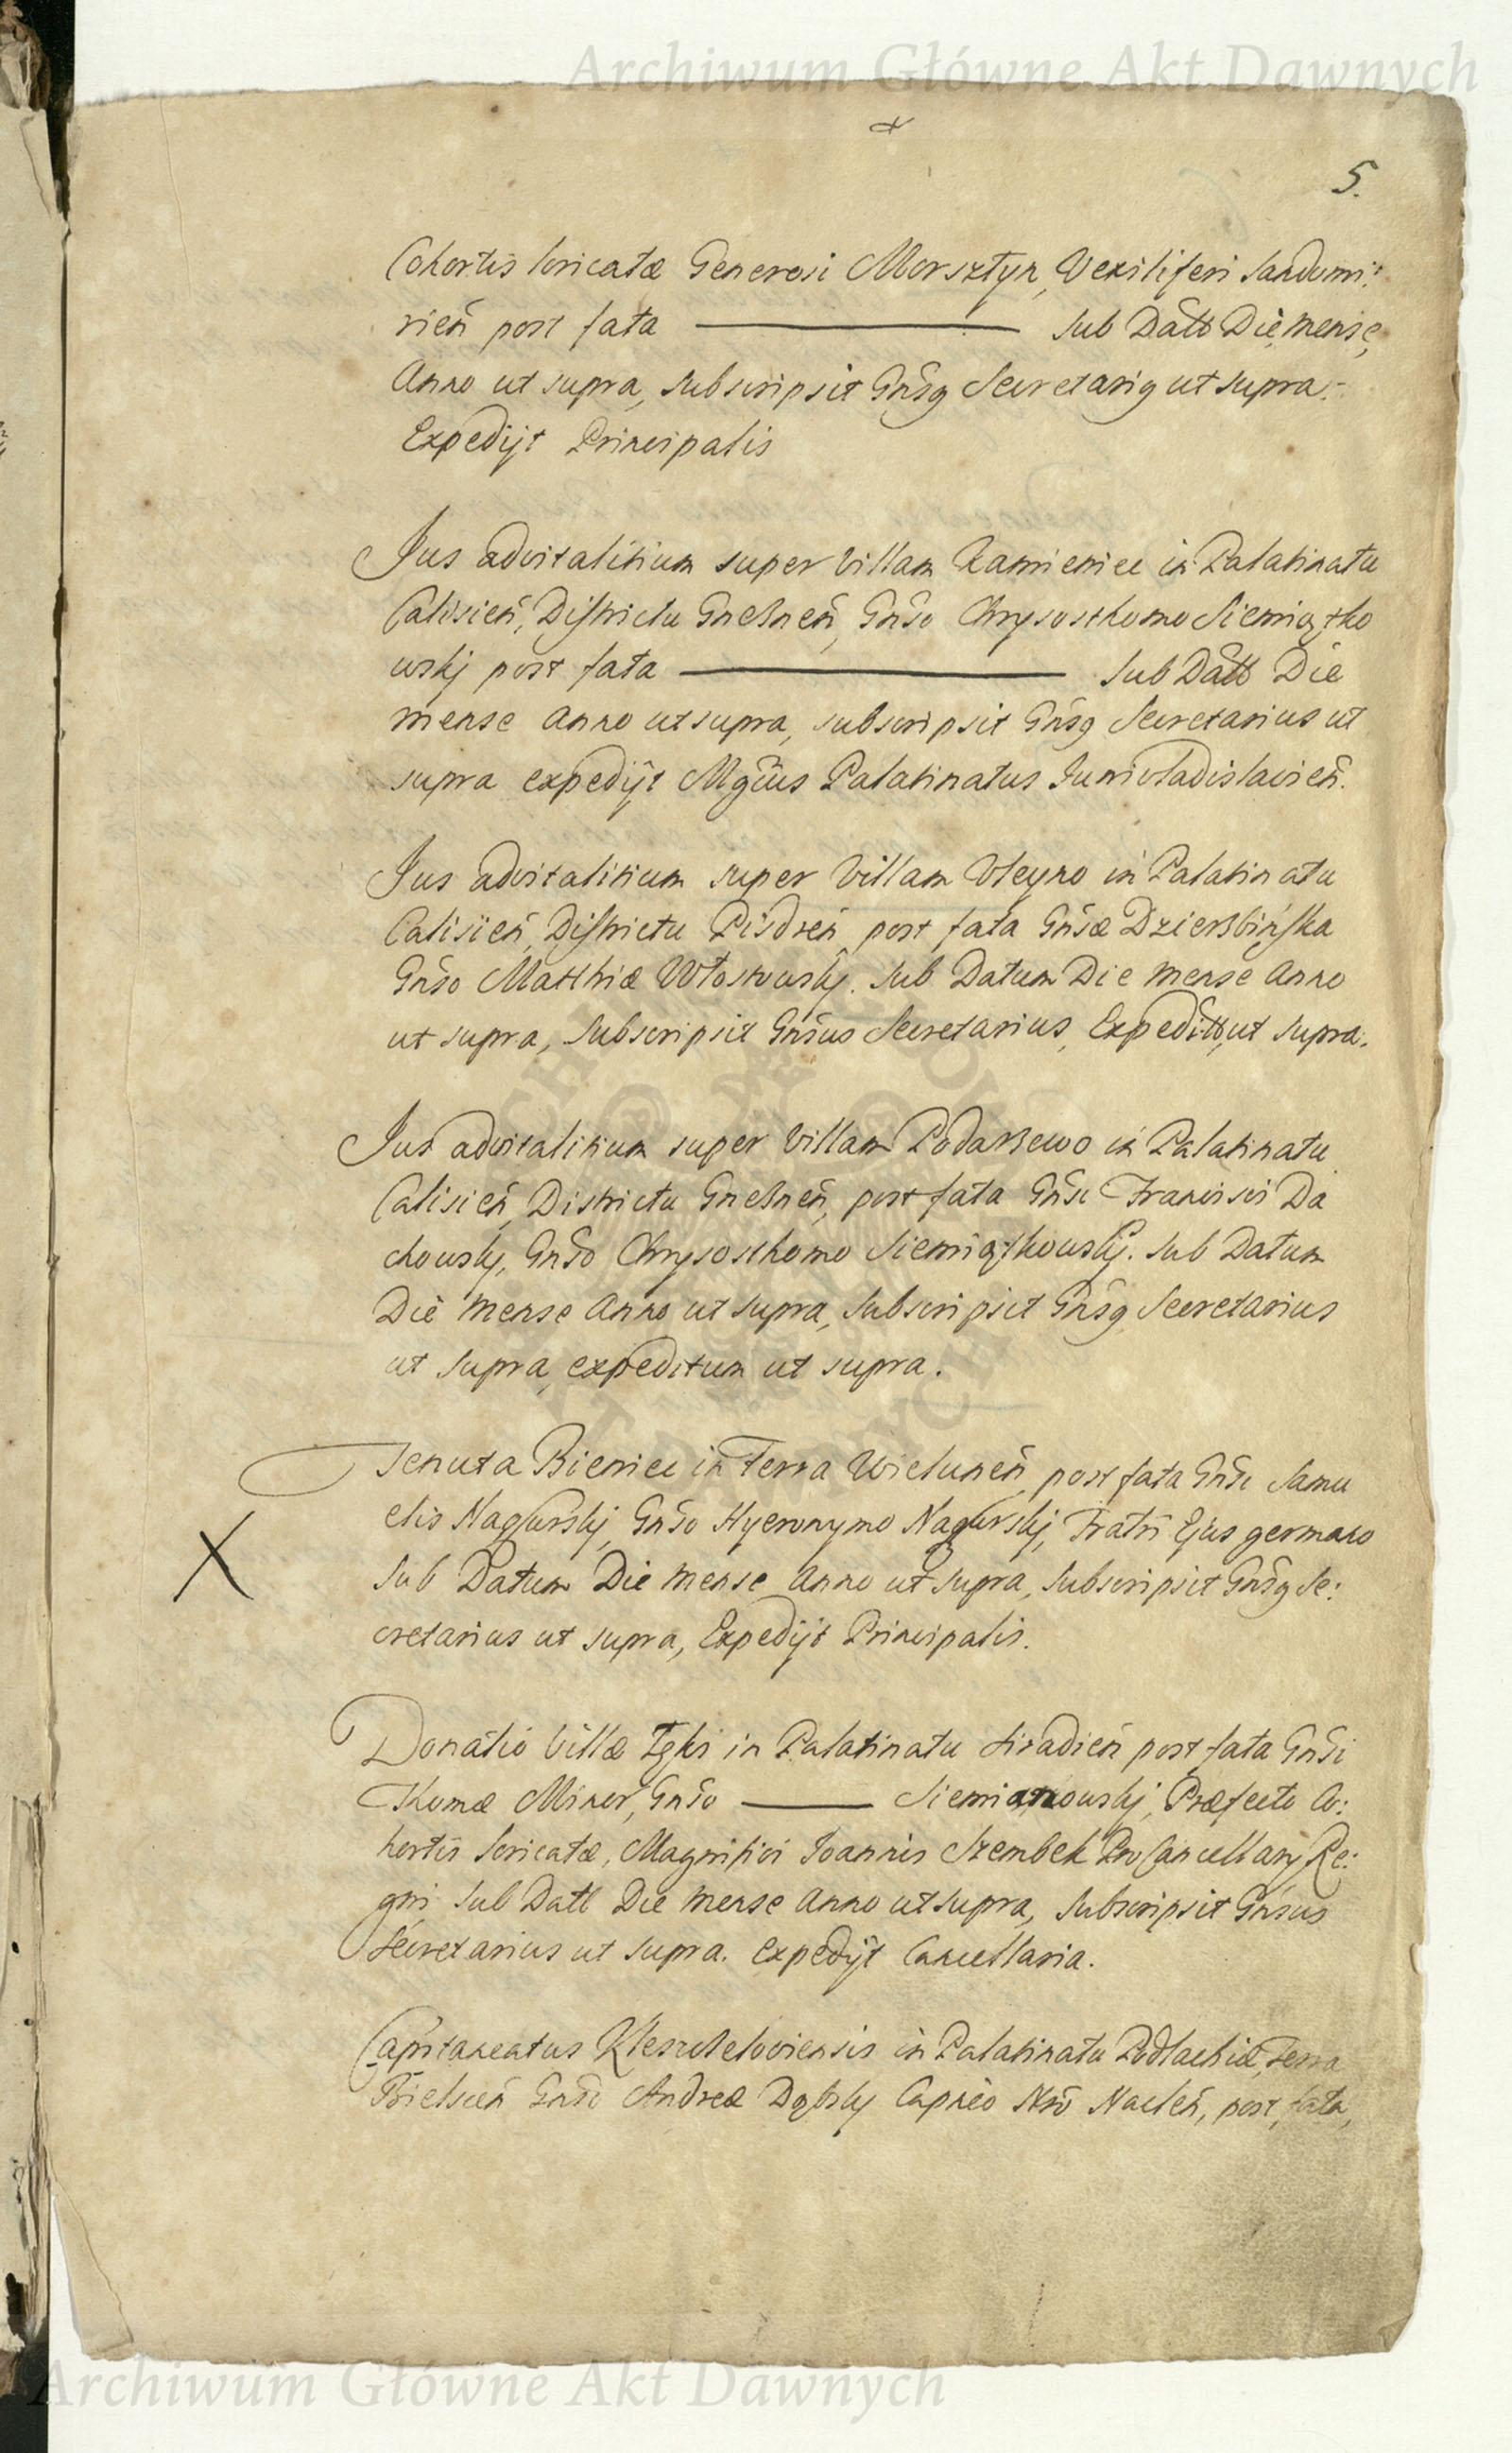 Archiwum Główne Akt Dawnych
5.
Cohortis loricatæ Generosi Morsztyn, Vexiliferi Sandomi:
rien̄ post fata ——— Sub Datt Die, mense,
Anno ut supra, subscripsit Gn̄sg Secretarig ut supra.
Expedijt Principalis
Jus advitalitium super Villam Kamieniec in Palatinatu
Calisien̄, Districtu Gnesnen̄, Gn̄so Chrysosthomo Siemiątko
wskj post fata ——— Sub Datt Die
mense Anno ut supra, subscripsit Gn̄sg Secretarius ut
supra expedijt Mgcus Palatinatus Junivladislavien̄.
Jus advitalitium super Villam Uleyno in Palatinatu
Calisien̄ Districtu Pisdren̄ post fata Gn̄sæ Dzierzbińska
Gn̄so Matthiæ Włostowskj. Sub Datum Die Mense Anno
ut supra, Subscripsit Gn̄sus Secretarius, Expeditt ut supra.
Jus advitalitium super Villam Podarzewo in Palatinatu
Calisien̄, Districtu Gnesnen̄, post fata Gn̄si Francisci Da
chowskj, Gn̄so Chrysosthomo Siemiątkowskj. Sub Datum
Die Mense Anno ut supra, Subscripsit Gn̄sg Secretarius
ut supra, expeditum ut supra.
Tenuta Bieniec in Terra Wielunen̄, post fata Gn̄si Samu
elis Nagurskj, Gn̄so Hyeronymo Nagurskj, Fratri Ejus germano
X
Sub Datum Die Mense Anno ut supra, Subscripsit Gn̄sg Se:
cretarius ut supra, Expedijt Principalis.
Donatio Villæ in Palatinatu Siradien̄ post fata Gn̄si
Thomæ Miner, Gn̄so ——— Siemianowskj, Præfecto Co:
hortis loricatæ, Magnifici Joannis Szembek ProCancellarij Re:
gni Sub Datt Die Mense Anno ut supra, Subscripsit Gn̄sus
Secretarius ut supra. Expedijt Cancellaria.
Capitaneatus Kleszczeloviensis in Palatinatu Podlachiæ, Terra
Bielscen̄ Gn̄so Andreæ Dąbskj Capneo Nr̄o Naclen̄, post fata,
Archiwum Główne Akt Dawnych